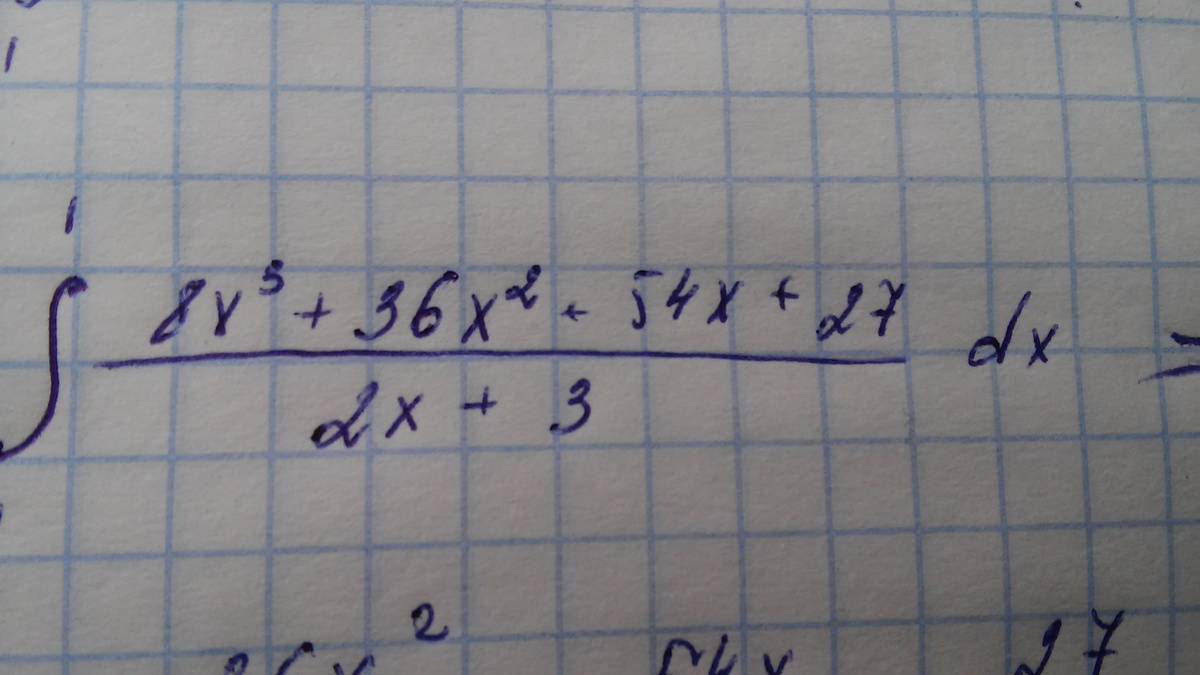 1
∫ 8x³ + 36x² + 54x + 27 dx =
2x + 3
36x² 54x 27